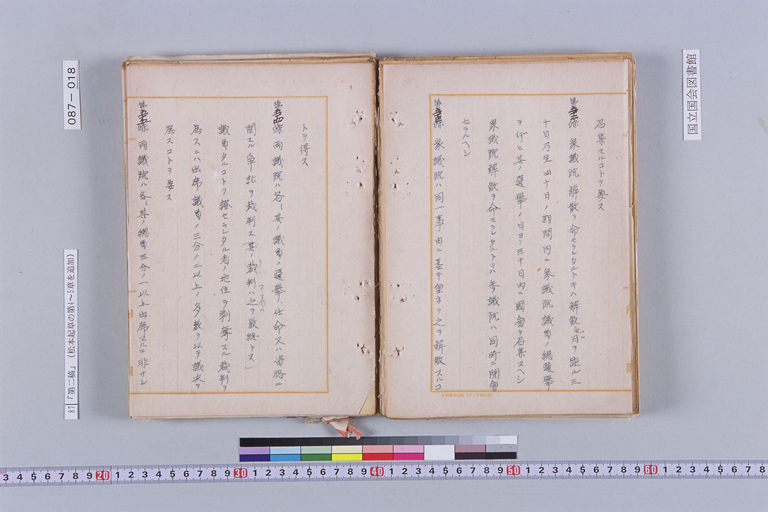 召集スルコトヲ要ス
第五十二條 衆議院解散ヲ命セラレタルトキハ解散ノ日ヲ距ル三
十日乃至四十日ノ期間内ニ衆議院議員ノ総選挙
ヲ行ヒ其ノ選挙ノ日ヨリ三十日内ニ國會ヲ召集スヘシ
衆議院解散ヲ命セラレタルトキハ参議院ハ同時ニ閉會
セラルヘシ
衆議院ハ同一事由ニ基キ重ネテ之ヲ解散スルコ
トヲ得ス
條 両議院ハ各〻其ノ議員ノ選挙、任命又ハ資格ニ
関スル争訟ヲ裁判ス其ノ裁判ハ之ヲ最終トス)
議員タルコトヲ證セラレタル者ノ地位ヲ剥奪スル裁判ヲ
為スニハ出席議員ノ三分ノ二以上ノ多数ヲ以テ議決ヲ
為スコトヲ要ス
條 両議院ハ各〻其ノ総員三分ノ一以上出席スルニ非サレ
087-018
87「第二稿」(松本起草の第4~5章を追加)
国立国会図書館